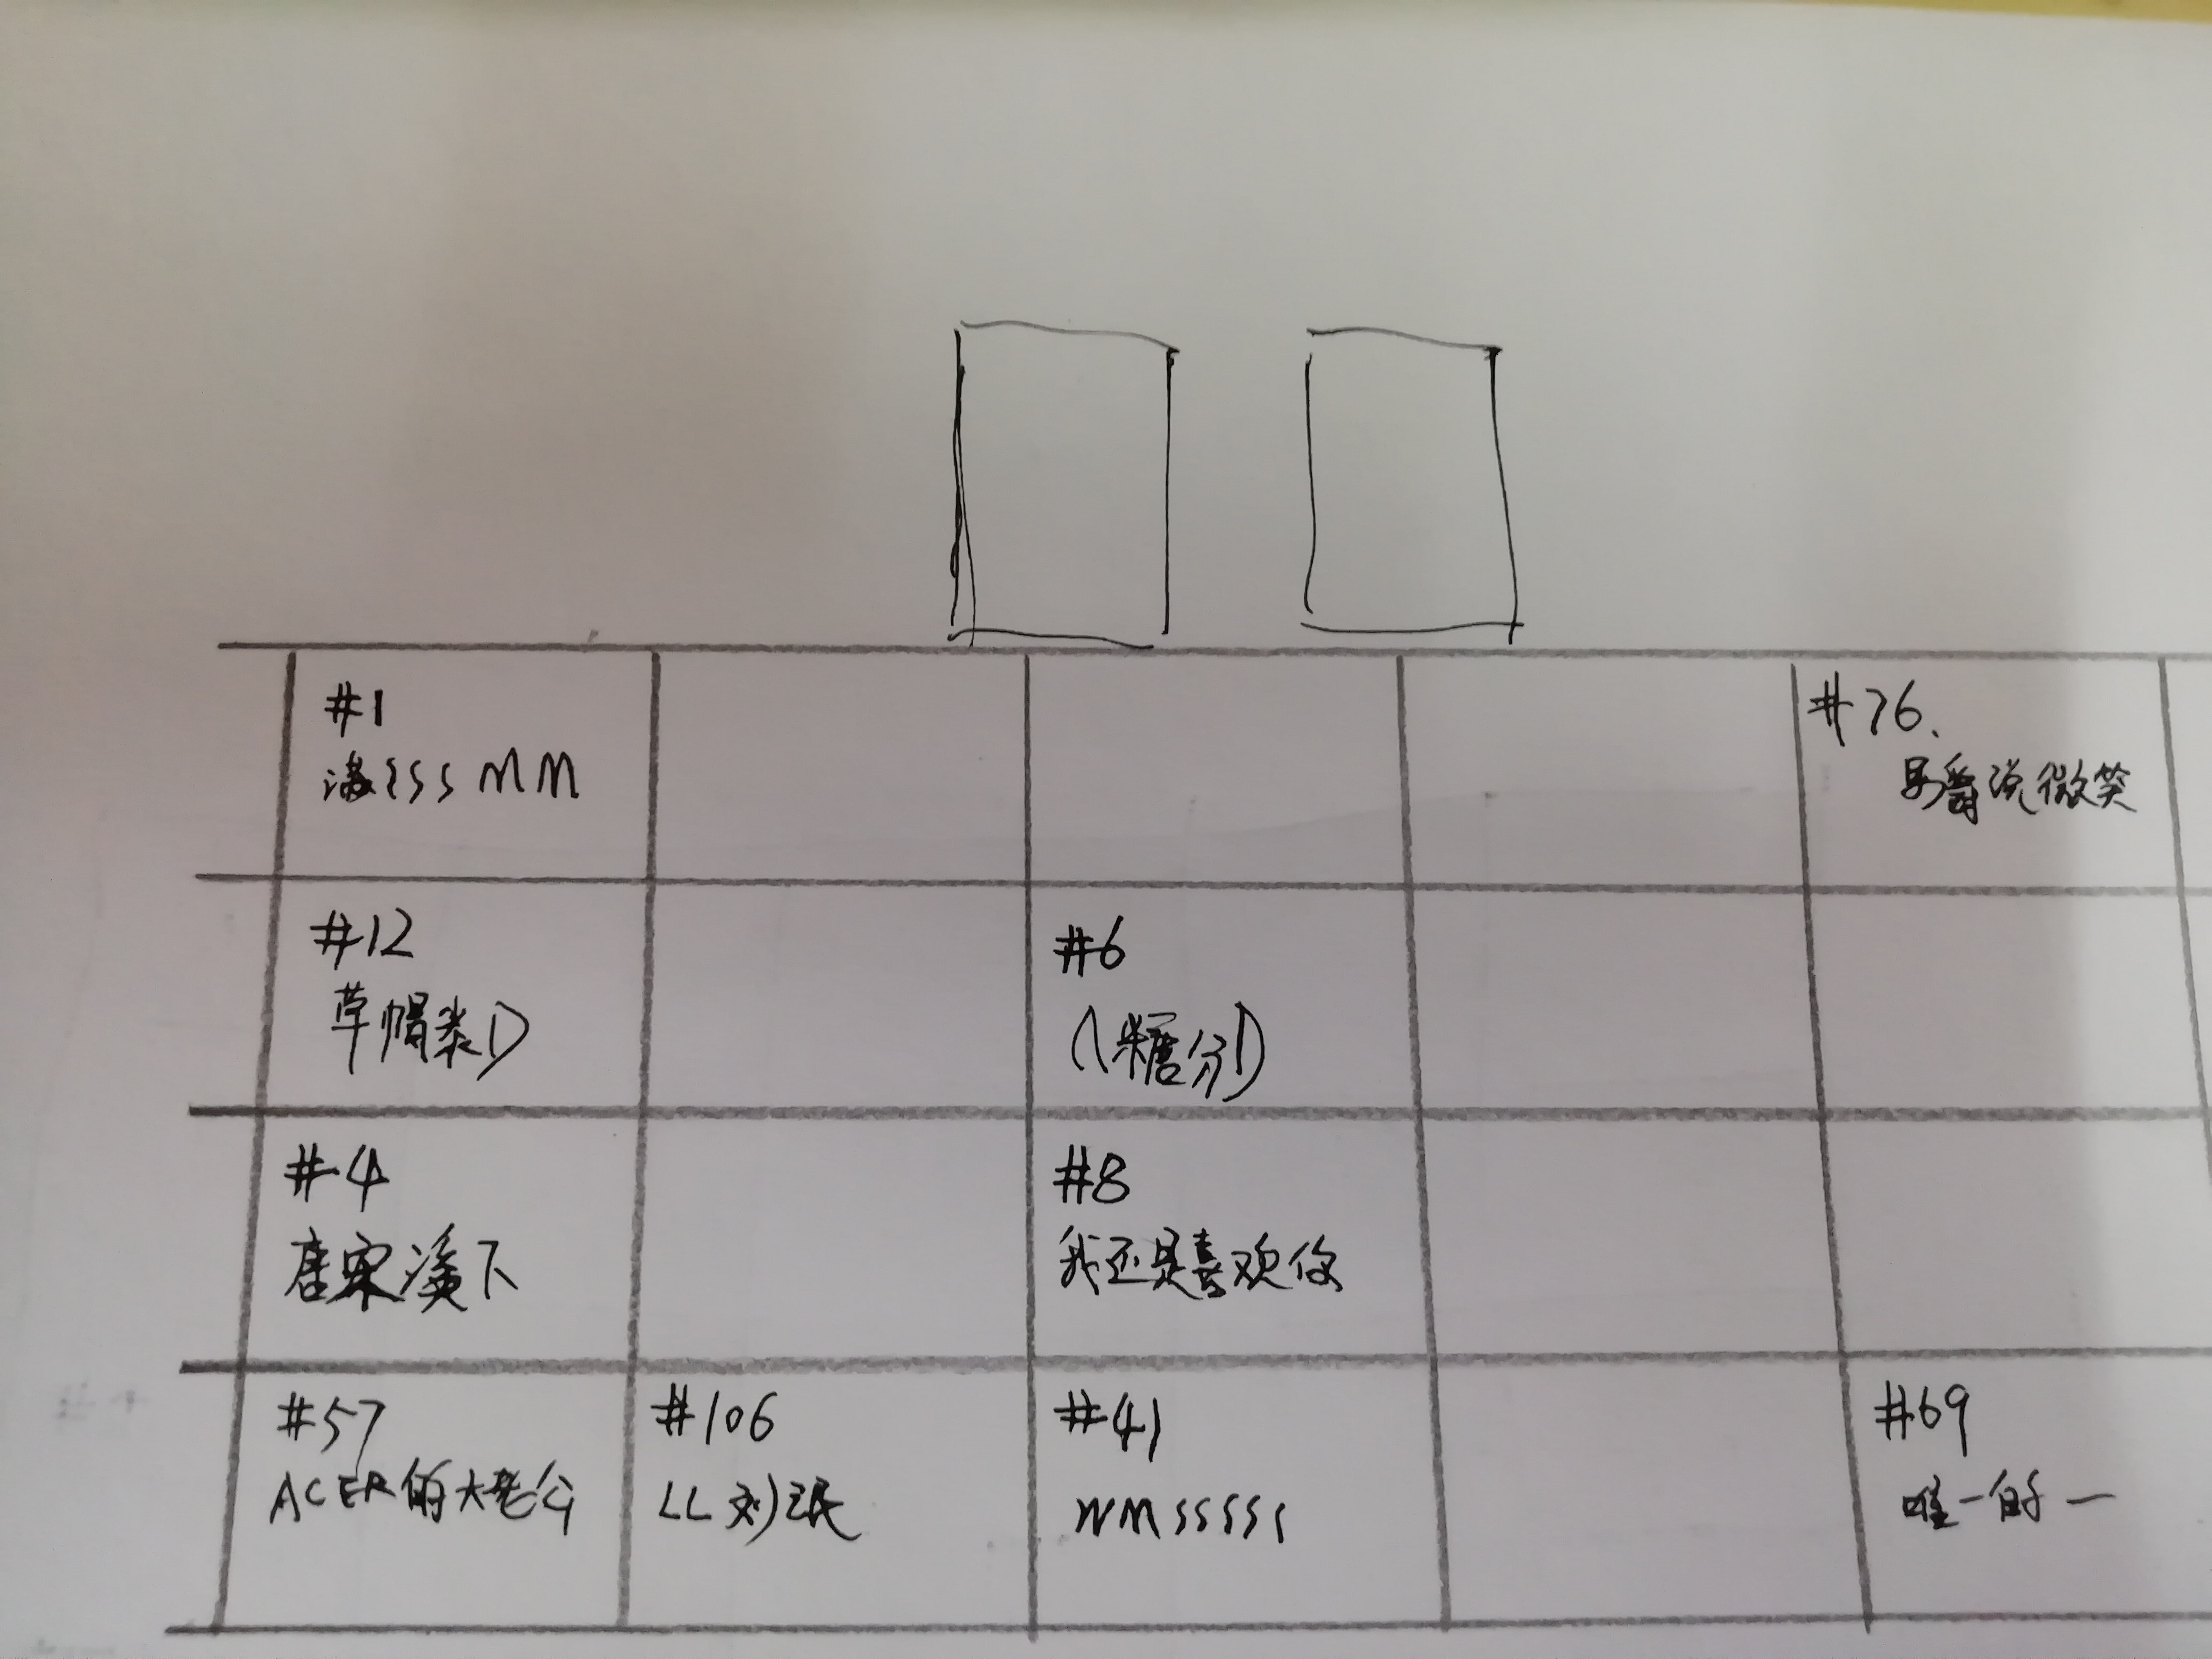 #1
满sssMM
#76、
男爵说微笑
#12
草帽
#6
(糖分)
#4
唐宋溪下
#8
我还是喜欢你
#57
ACER的大老公
#106
LL刘珉
#41
WMsssss
#69
唯一的一